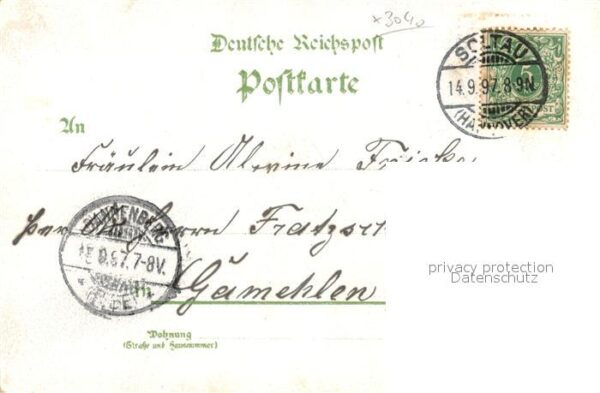 ×3040
Deutsche Reichspost
Postkarte
SOLTAU
14.9.97.8-9N
(HANNOVER)
An
Fräulein Alwine Fricke
per Herrn
DANNENBERG
15.9.97.7-8V.
Gümehlen
privacy protection
Datenschutz
Wohnung
(Straße und Hausnummer)